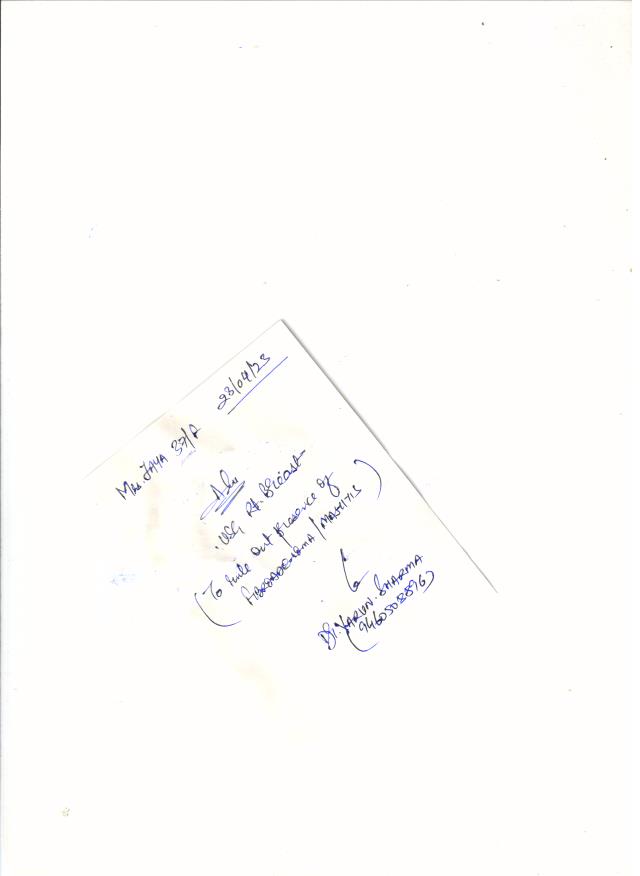 28/04/23
Mrs. JAYA 37/F
Adv
. USG Rt. Breast
(To rule out presence of
FIBROADENOMA/MASTITIS)
Dr. VARUN. SHARMA
(9460508896)